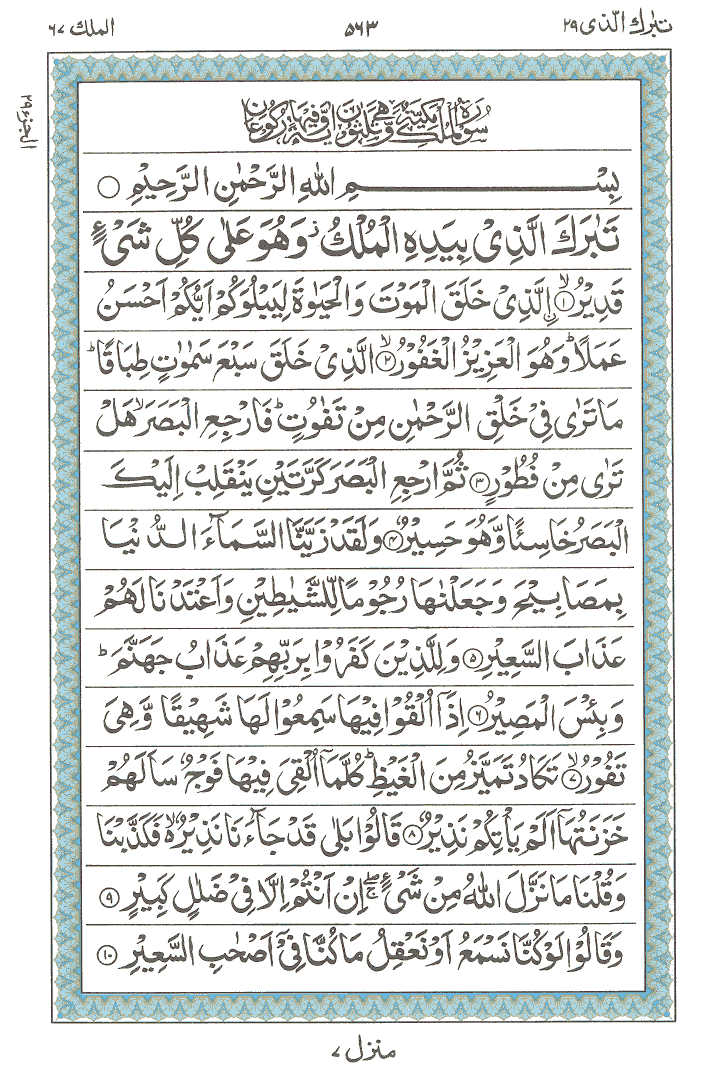 تبٰرك الّذی ٢٩
٥٦٣
الملك ٦٧
الجزء ٢٩
سُوْرَةُ الْمُلْكِ مَكِّيَّةٌ وَّهِیَ ثَلٰثُوْنَ اٰيَةً وَّفِيْهَا رُكُوْعَانِ
بِسْمِ اللهِ الرَّحْمٰنِ الرَّحِيْمِ ○
تَبٰرَكَ الَّذِیْ بِيَدِهِ الْمُلْكُ ز وَهُوَ عَلٰی كُلِّ شَیْءٍ
قَدِيْرُ ۙ﴿١﴾ اِۨلَّذِیْ خَلَقَ الْمَوْتَ وَالْحَيٰوةَ لِيَبْلُوَكُمْ اَيُّكُمْ اَحْسَنُ
عَمَلًا ؕ وَهُوَ الْعَزِيْزُ الْغَفُوْرُ ۙ﴿٢﴾ الَّذِیْ خَلَقَ سَبْعَ سَمٰوٰتٍ طِبَاقًا ؕ
مَا تَرٰی فِیْ خَلْقِ الرَّحْمٰنِ مِنْ تَفٰوُتٍ ؕ فَارْجِعِ الْبَصَرَ ۙ هَلْ
تَرٰی مِنْ فُطُوْرٍ ﴿٣﴾ ثُمَّ ارْجِعِ الْبَصَرَ كَرَّتَيْنِ يَنْقَلِبْ اِلَيْكَ
الْبَصَرُ خَاسِئًا وَّهُوَ حَسِيْرٌ ﴿٤﴾ وَلَقَدْ زَيَّنَّا السَّمَآءَ الدُّنْيَا
بِمَصَابِيْحَ وَجَعَلْنٰهَا رُجُوْمًا لِّلشَّيٰطِيْنِ وَاَعْتَدْنَا لَهُمْ
عَذَابَ السَّعِيْرِ ﴿٥﴾ وَلِلَّذِيْنَ كَفَرُوْا بِرَبِّهِمْ عَذَابُ جَهَنَّمَ ؕ
وَبِئْسَ الْمَصِيْرُ ﴿٦﴾ اِذَآ اُلْقُوْا فِيْهَا سَمِعُوْا لَهَا شَهِيْقًا وَّهِیَ
تَفُوْرُ ۙ﴿٧﴾ تَكَادُ تَمَيَّزُ مِنَ الْغَيْظِ ؕ كُلَّمَآ اُلْقِیَ فِيْهَا فَوْجٌ سَاَلَهُمْ
خَزَنَتُهَآ اَلَمْ يَاْتِكُمْ نَذِيْرٌ ﴿٨﴾ قَالُوْا بَلٰی قَدْ جَآءَنَا نَذِيْرٌ ۙ۬ فَكَذَّبْنَا
وَقُلْنَا مَا نَزَّلَ اللهُ مِنْ شَیْءٍ ۚۖ اِنْ اَنْتُمْ اِلَّا فِیْ ضَلٰلٍ كَبِيْرٍ ﴿٩﴾
وَقَالُوْا لَوْ كُنَّا نَسْمَعُ اَوْ نَعْقِلُ مَا كُنَّا فِیْۤ اَصْحٰبِ السَّعِيْرِ ﴿١٠﴾
منزل ٧